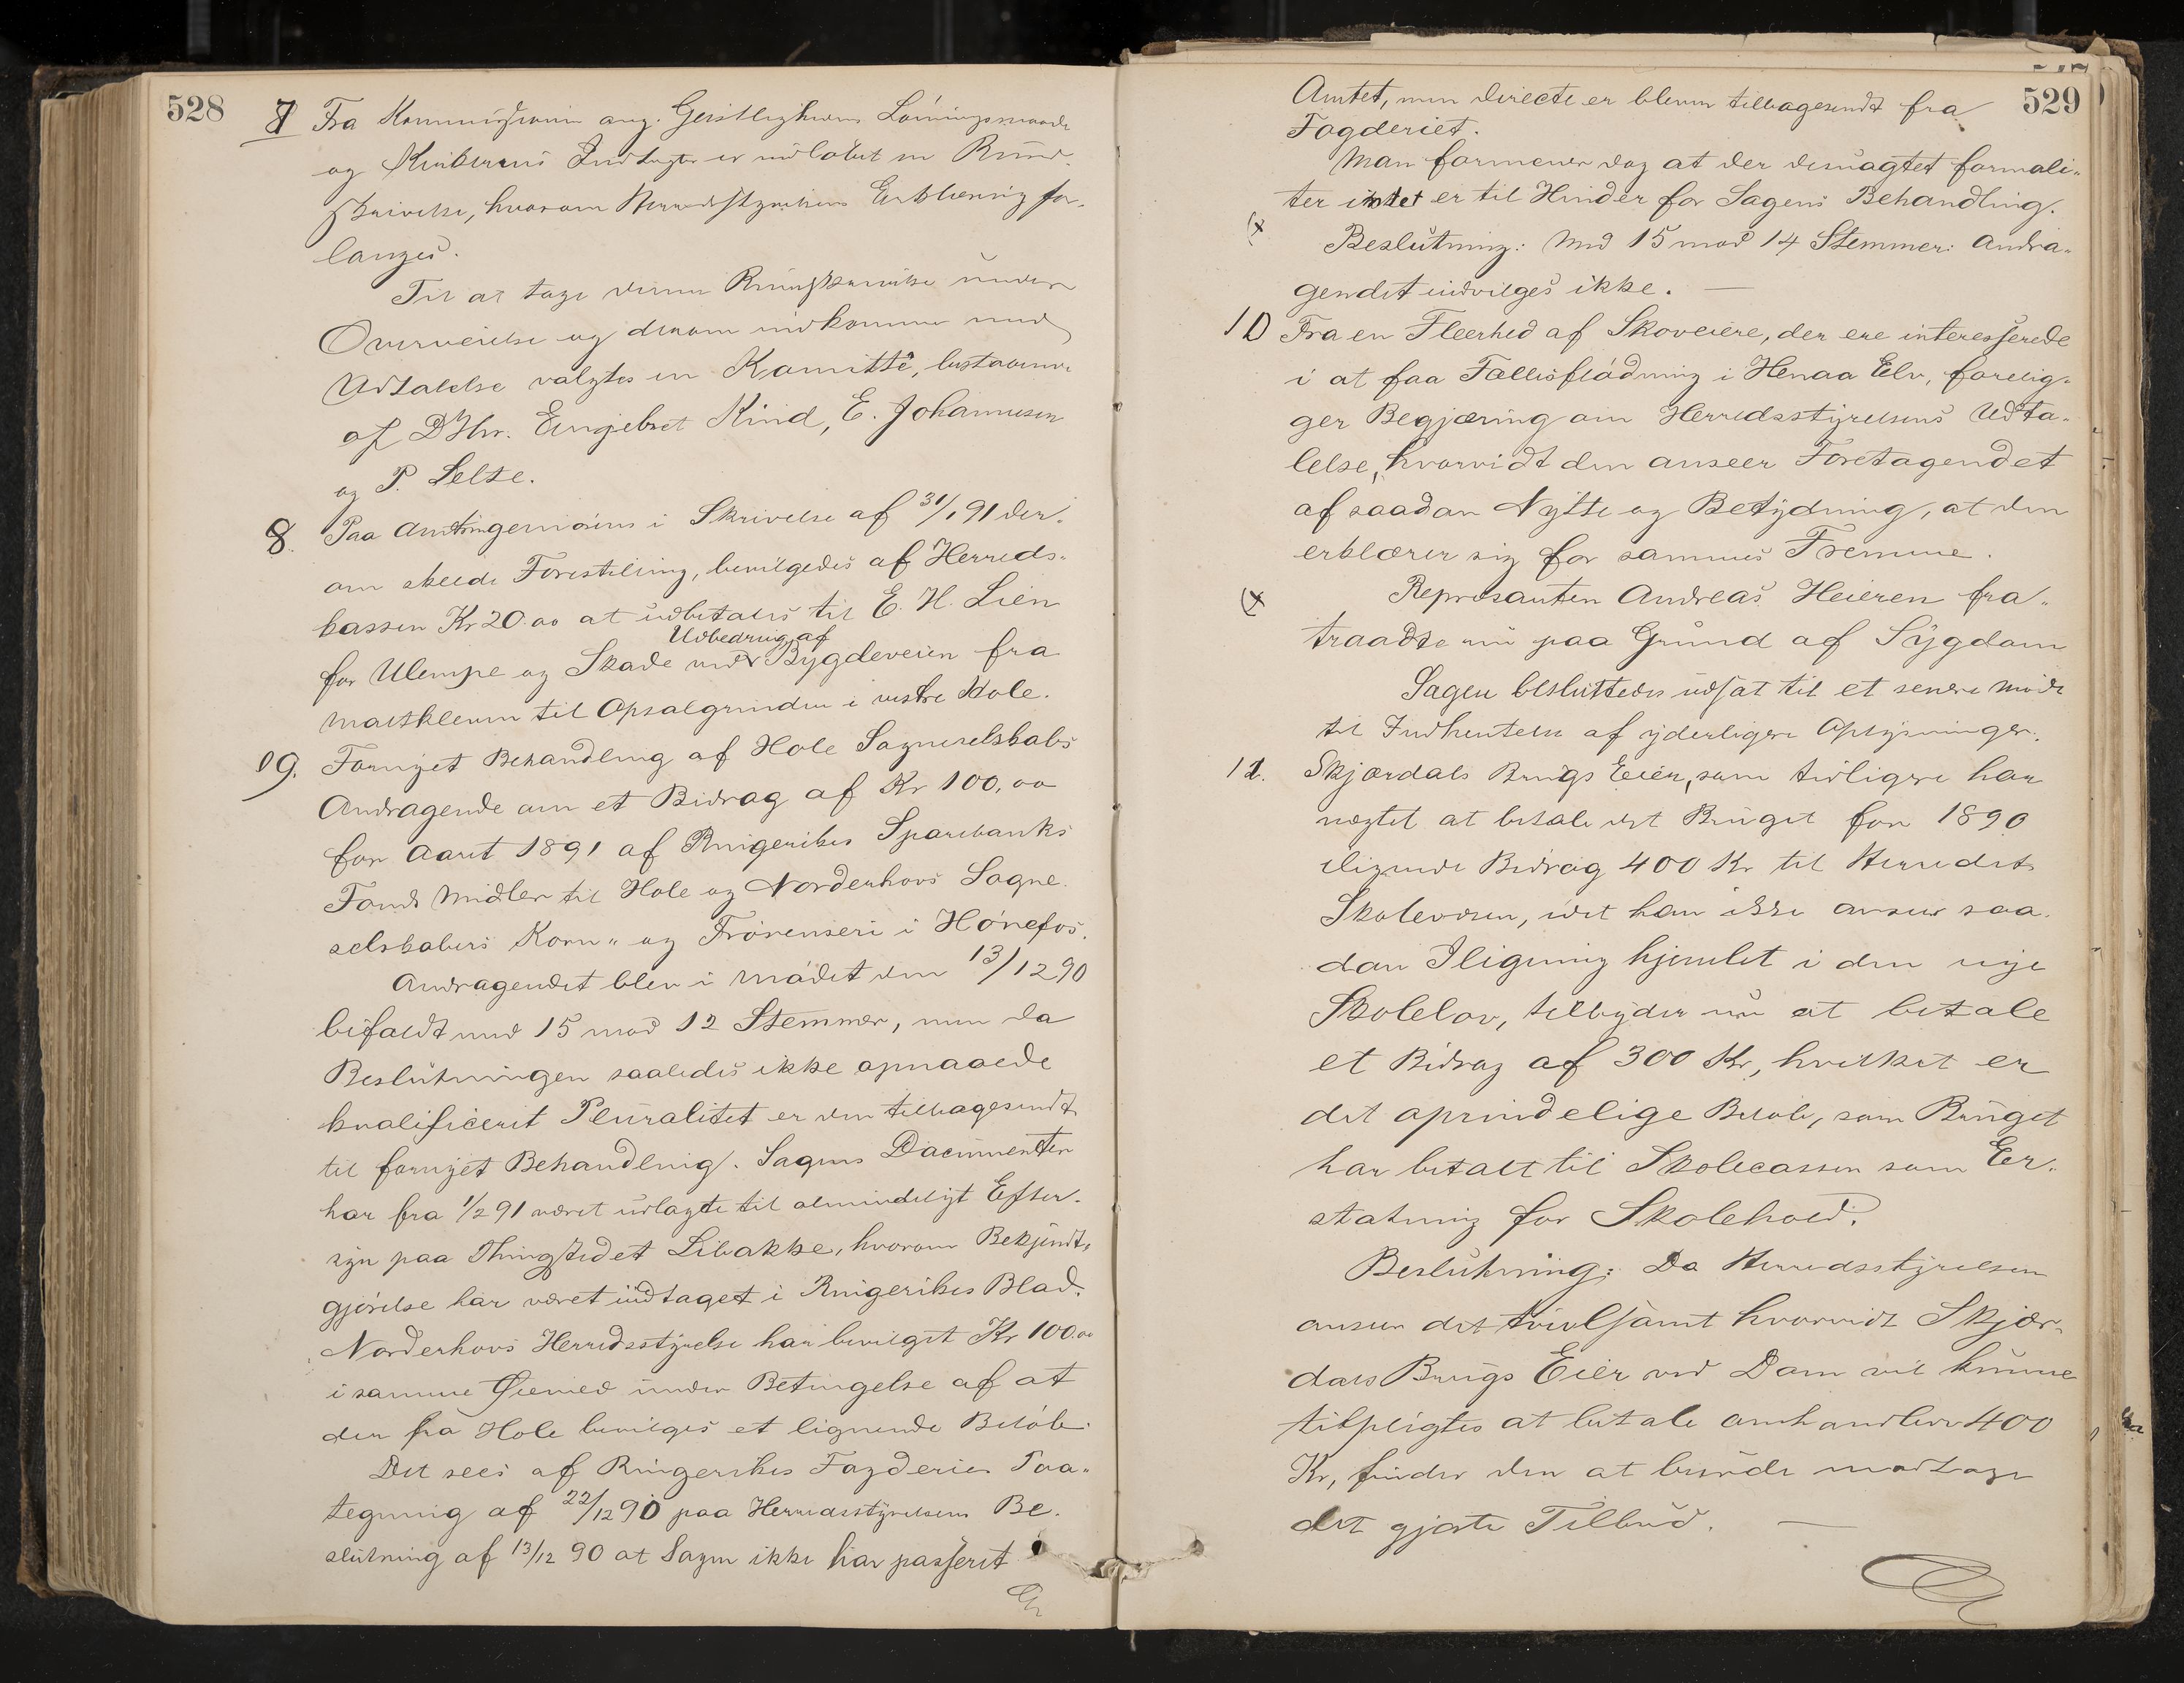 528
7 Fra Kommissionen ang. Geistlighedens Lönningsmaade
og Kirkernes Indtægter er indløbet en Rund-
skrivelse, hvorom Herredsstyrelsens Erklæring for-
langes.
Til at tage denne Rundskrivelse under
Overveielse og derom indkomme med
Udtalelse valgtes en Komitté, bestaaende
af DHrr. Engebret Rind, E. Johannesen
og P. Selte.
8. Paa Amtsingeniørens i Skrivelse af 31/1 91 der-
om skeede Forestilling, bevilgedes af Herreds-
kassen Kr 20.00 at udbetales til E. H. Lien
Udbedring af
for Ulempe og Skade ved Bygdeveien fra
til Opsalgrinden i vestre Hole.
9. Fornyet Behandling af Hole Sogneselskabs
Andragende om et Bidrag af Kr 100,00
for Aaret 1891 af Ringerikes Sparebanks
Fonds Midler til Hole og Norderhovs Sogne-
selskabers Korn- og Frörenseri i Hönefos.
Andragendet blev i Mödet den 13/12 90
bifaldt med 15 mod 12 Stemmer, men da
Beslutningen saaledes ikke opnaaede
kvalificerit Pluralitet er den tilbagesendt
til fornyet Behandling. Sagens Documenter
har fra 1/2 91 været udlagte til almindeligt Efter-
syn paa Thingstedet Libakke, hvorom Bekjendt-
gjörelse har været indtaget i Ringerikes Blad.
Norderhovs Herredsstyrelse har bevilget Kr 100.00
i samme Øiemed under Betingelse af at
der fra Hole bevilges et lignende Belöb.
Det sees af Ringerikes Fogderies Paa-
tegning af 22/12 90 paa Herredsstyrelsens Be-
slutning af 13/12 90 at Sagen ikke har passeret
529
Amtet, men directe er bleven tilbagesendt fra
Fogderiet.
Man formener dog at der desuagtet formali-
ter intet er til Hinder for Sagens Behandling.
(x Beslutning: Med 15 mod 14 Stemmer: Andra-
gendet indvilges ikke. —
10 Fra en Fleerhed af Skoveiere, der ere interesserede
i at faa Fællesflödning i Henaa Elv, forelig-
ger Begjæring om Herredsstyrelsens Udta-
lelse, hvorvidt den anseer Foretagendet
af saadan Nytte og Betydning, at den
erklærer sig for sammes Fremme.
(x Reprosanten Andreas Heieren fra-
traadte nu paa Grund af Sygdom
Sagen besluttedes udsat til et senere Möde
til Indhentelse af yderligere Oplysninger.
11. Skjærdals Brugs Eier, som tidligere har
nægtet at betale det Bruget for 1890
ilignede Bidrag 400 Kr til Herredets
Skolevæsen, idet han ikke anseer saa-
dan Iligning hjemlet i den nye
Skolelov, tilbyder nu at betale
et Bidrag af 300 Kr, hvilket er
det oprindelige Belöb, som Bruget
har betalt til Skolecassen som Er-
statning for Skolehold.
Beslutning: Da Herredsstyrelsen
anseer det tvivlsomt hvorvidt Skjær-
dals Brugs Eier ved Dom vil kunne
tilpligtes at betale omhandlede 400
Kr, finder den at burde modtage
det gjorte Tilbud. —